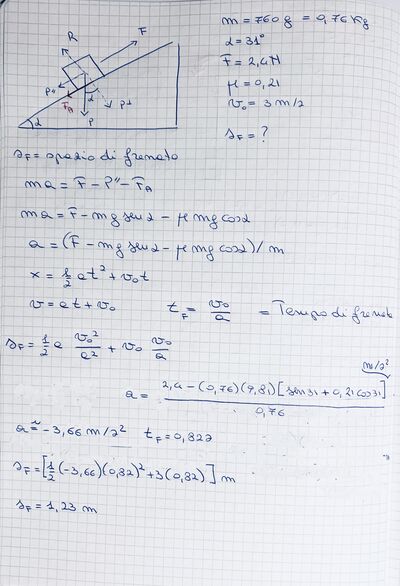 m = 760 g = 0,76 Kg
α = 31°
F = 2,4 N
μ = 0,21
v₀ = 3 m/s
s_F = ?
R
F
P"
α
P⊥
F_A
P
α
s_F = spazio di frenata
ma = F - P" - F_A
ma = F - mg sen α - μ mg cos α
a = (F - mg sen α - μ mg cos α) / m
x = 1/2 a t² + v₀ t
v = a t + v₀ t_F = v₀/a = Tempo di frenata
s_F = 1/2 a v₀²/a² + v₀ v₀/a
m/s²
a = 2,4 - (0,76)(9,81)[sen 31 + 0,21 cos 31] / 0,76
a ≅ -3,66 m/s² t_F = 0,82 s
s_F = [1/2 (-3,66)(0,82)² + 3(0,82)] m
s_F = 1,23 m